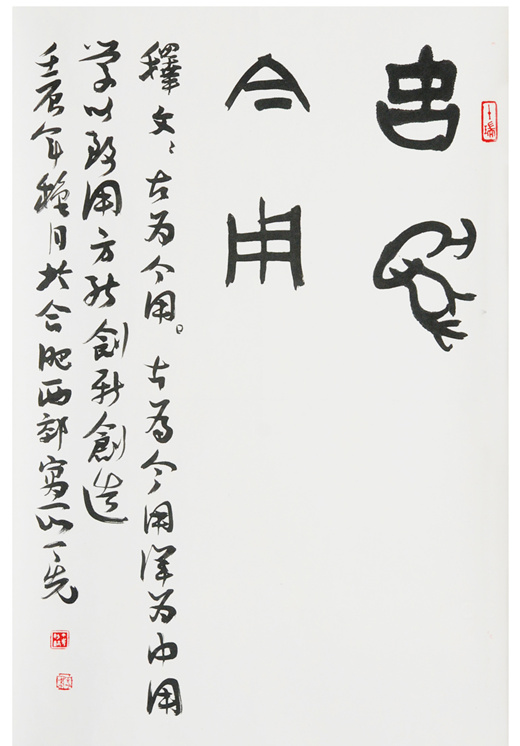 古為
今用
釋文：古为今用。古為今用洋为中用
学以致用方能創新創造
壬辰年穐月於合肥西郊寓所丁先